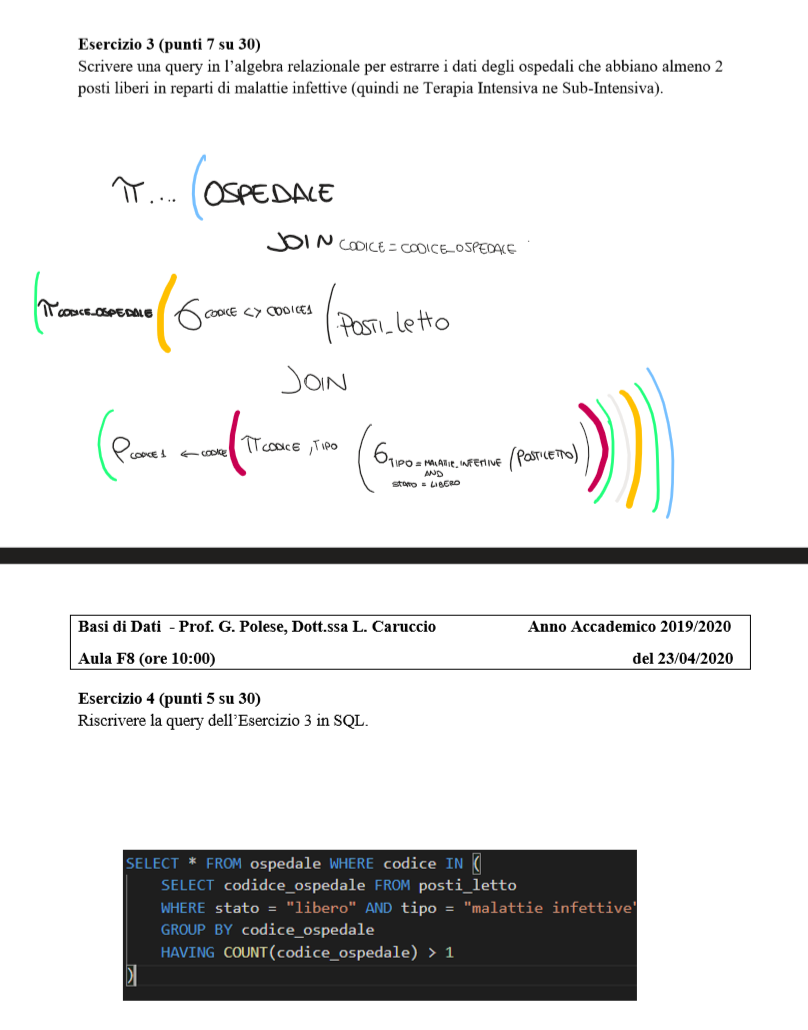 Esercizio 3 (punti 7 su 30)
Scrivere una query in l'algebra relazionale per estrarre i dati degli ospedali che abbiano almeno 2
posti liberi in reparti di malattie infettive (quindi ne Terapia Intensiva ne Sub-Intensiva).
π.... (OSPEDALE
JOIN CODICE = CODICE_OSPEDALE
(π CODICE_OSPEDALE (σ CODICE <> CODICE1 (POSTI_letto
JOIN
(ρ CODICE1 ← CODICE (π CODICE, TIPO (σ TIPO = MALATTIE_INFETTIVE (POSTILETTO)))))))))
AND
STATO = LIBERO
Basi di Dati - Prof. G. Polese, Dott.ssa L. Caruccio Anno Accademico 2019/2020
Aula F8 (ore 10:00) del 23/04/2020
Esercizio 4 (punti 5 su 30)
Riscrivere la query dell'Esercizio 3 in SQL.
SELECT * FROM ospedale WHERE codice IN (
SELECT codidce_ospedale FROM posti_letto
WHERE stato = "libero" AND tipo = "malattie infettive"
GROUP BY codice_ospedale
HAVING COUNT(codice_ospedale) > 1
)